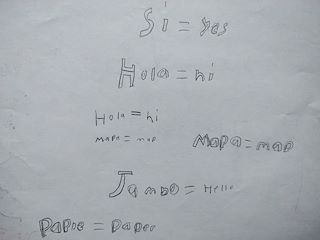 Si = yes
Hola = hi
Hola = hi
mapa = map
Mapa = map
Jambo = Hello
Papie = Paper